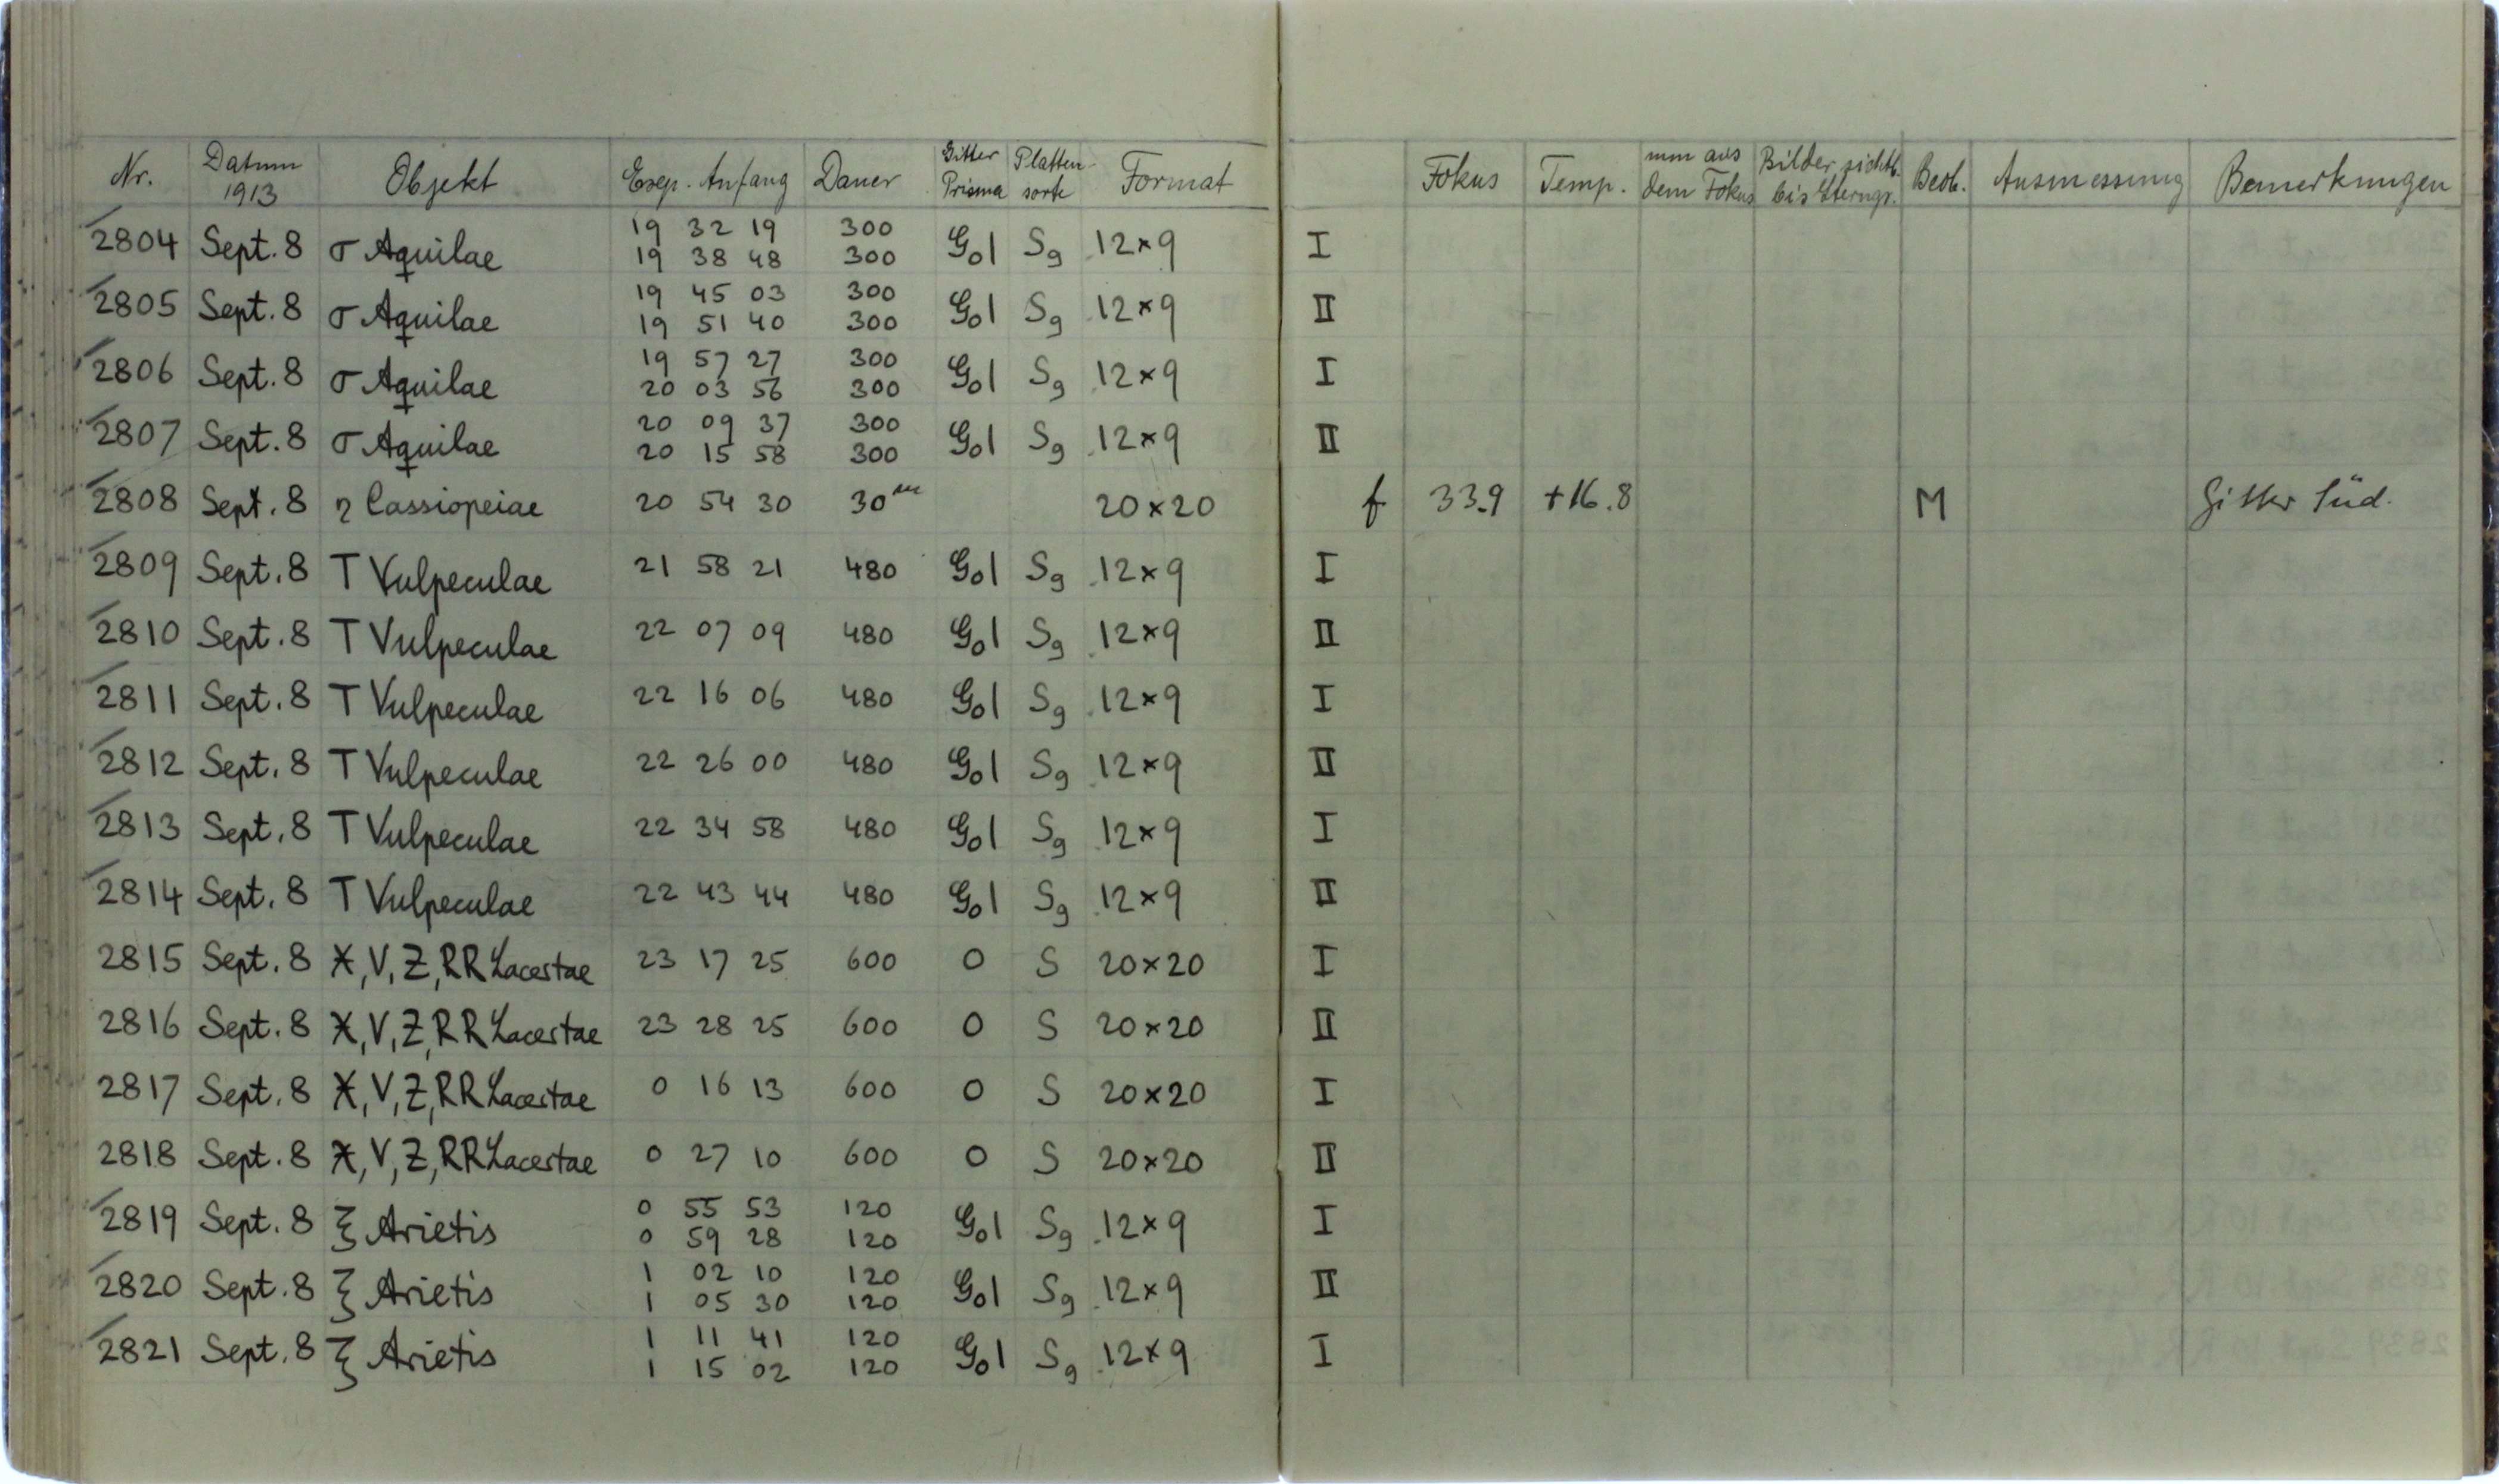 Nr. Datum 1913 Objekt Exp. Anfang Dauer Gitter Prisma Platten-sorte Format Fokus Temp. mm aus dem Fokus Bilder sichtb. bis Sterngr. Beob. Ausmessung Bemerkungen
2804 Sept. 8 σ Aquilae 19 32 19 300 G₀1 Sg 12×9 I
19 38 48 300
2805 Sept. 8 σ Aquilae 19 45 03 300 G₀1 Sg 12×9 II
19 51 40 300
2806 Sept. 8 σ Aquilae 19 57 27 300 G₀1 Sg 12×9 I
20 03 56 300
2807 Sept. 8 σ Aquilae 20 09 37 300 G₀1 Sg 12×9 II
20 15 58 300
2808 Sept. 8 η Cassiopeiae 20 54 30 30ᵐ 20×20 f 33.9 +16.8 M Gitter Süd.
2809 Sept. 8 T Vulpeculae 21 58 21 480 G₀1 Sg 12×9 I
2810 Sept. 8 T Vulpeculae 22 07 09 480 G₀1 Sg 12×9 II
2811 Sept. 8 T Vulpeculae 22 16 06 480 G₀1 Sg 12×9 I
2812 Sept. 8 T Vulpeculae 22 26 00 480 G₀1 Sg 12×9 II
2813 Sept. 8 T Vulpeculae 22 34 58 480 G₀1 Sg 12×9 I
2814 Sept. 8 T Vulpeculae 22 43 44 480 G₀1 Sg 12×9 II
2815 Sept. 8 X, V, Z, RR Lacertae 23 17 25 600 0 S 20×20 I
2816 Sept. 8 X, V, Z, RR Lacertae 23 28 25 600 0 S 20×20 II
2817 Sept. 8 X, V, Z, RR Lacertae 0 16 13 600 0 S 20×20 I
2818 Sept. 8 X, V, Z, RR Lacertae 0 27 10 600 0 S 20×20 II
2819 Sept. 8 ξ Arietis 0 55 53 120 G₀1 Sg 12×9 I
0 59 28 120
2820 Sept. 8 ξ Arietis 1 02 10 120 G₀1 Sg 12×9 II
1 05 30 120
2821 Sept. 8 ξ Arietis 1 11 41 120 G₀1 Sg 12×9 I
1 15 02 120